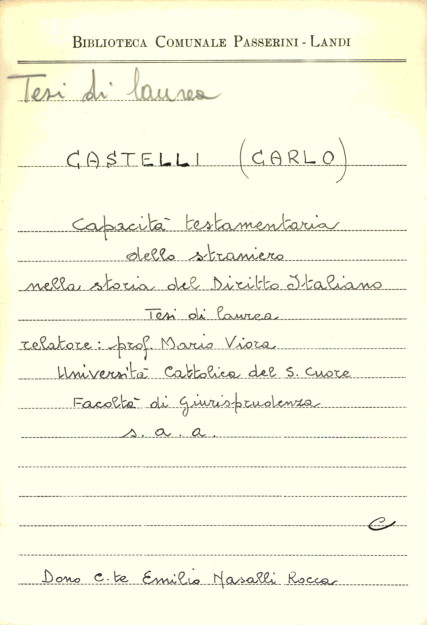 BIBLIOTECA COMUNALE PASSERINI - LANDI
Tesi di laurea
CASTELLI (CARLO)
Capacità testamentaria
dello straniero
nella storia del Diritto Italiano
Tesi di laurea
relatore: prof. Mario Viora
Università Cattolica del S. Cuore
Facoltà di Giurisprudenza
s. a. a.
C
Dono C.te Emilio Nasalli Rocca